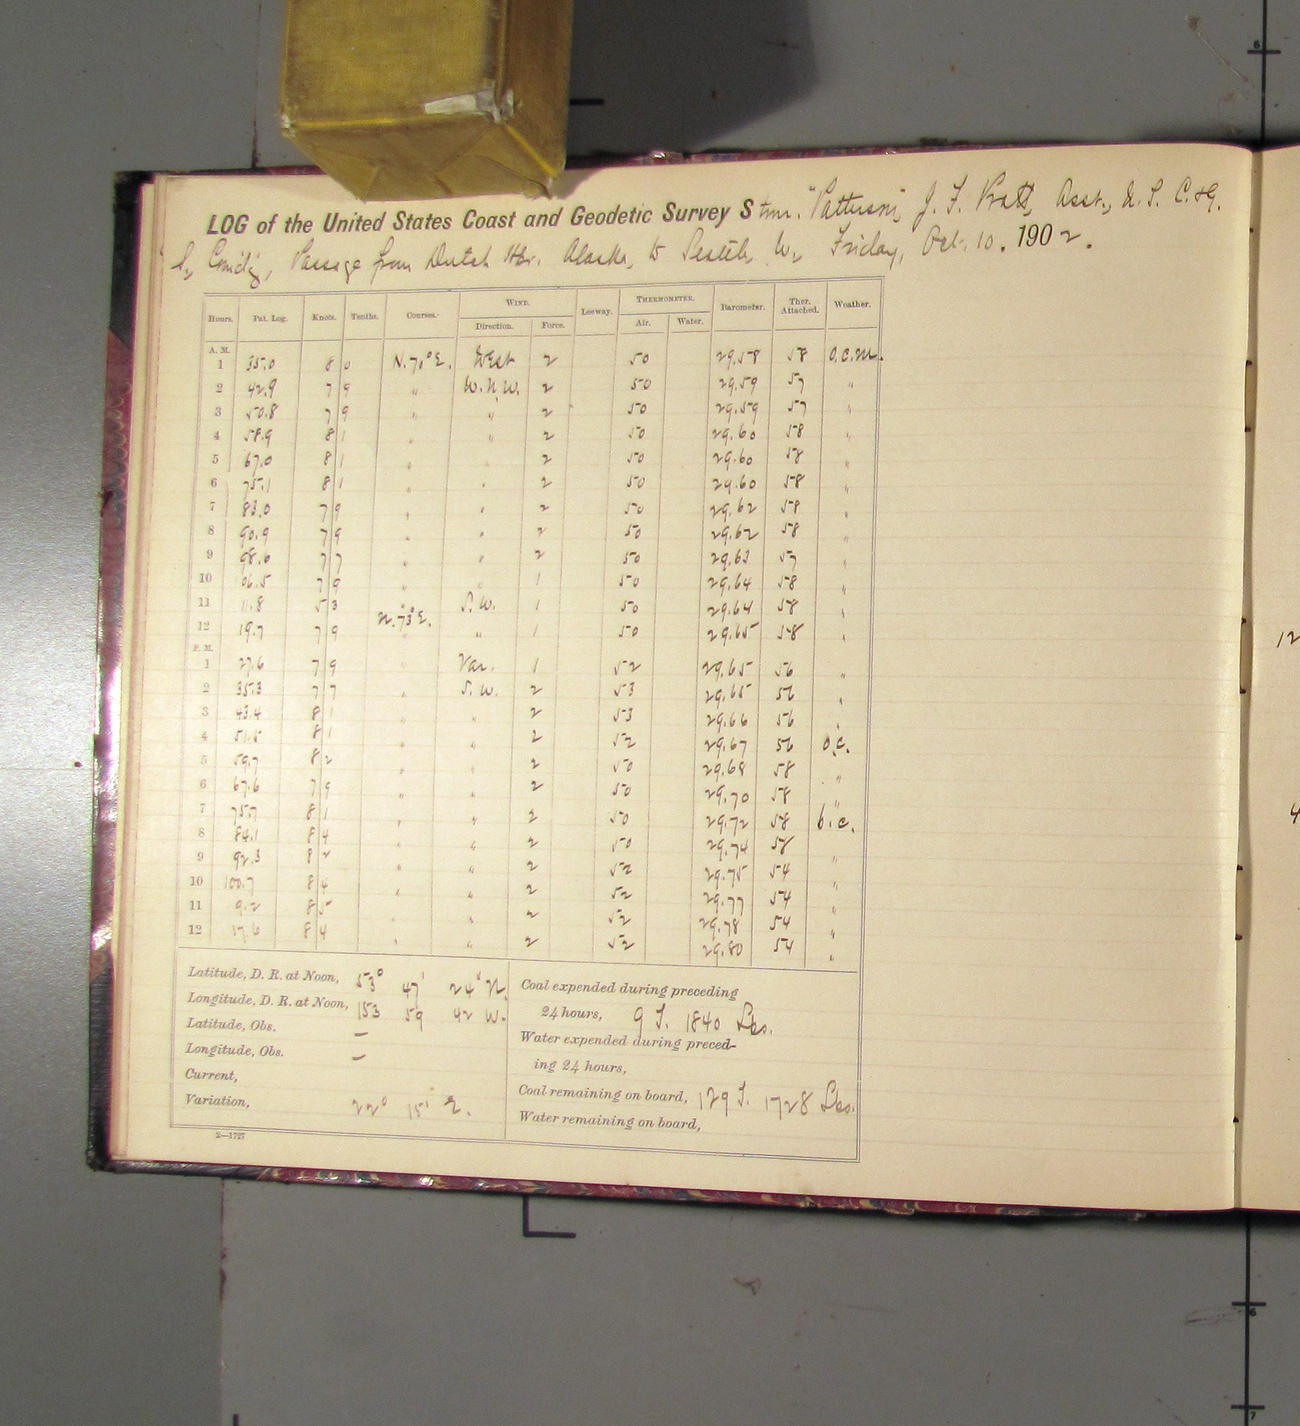 LOG of the United States Coast and Geodetic Survey Stmr. "Patterson", J. F. Pratt, Asst., U. S. C. & G.
S. Comd'g, Passage from Dutch Hbr. Alaska, to Seattle, W., Friday, Oct. 10. 1902.
Hours. Pat. Log. Knots. Tenths. Courses. WIND. Direction. Force. Leeway. THERMOMETER. Air. Water. Barometer. Ther. Attached. Weather.
A. M.
1 35.0 8 0 N. 70° E. West 2 50 29.58 58 O.c.m.
2 42.9 7 9 " W.N.W. 2 50 29.59 57 "
3 50.8 7 9 " " 2 50 29.59 57 "
4 58.9 8 1 " " 2 50 29.60 58 "
5 67.0 8 1 " " 2 50 29.60 58 "
6 75.1 8 1 " " 2 50 29.60 58 "
7 83.0 7 9 " " 2 50 29.62 58 "
8 90.9 7 9 " " 2 50 29.62 58 "
9 98.6 7 7 " " 2 50 29.63 57 "
10 06.5 7 9 " " 1 50 29.64 58 "
11 11.8 5 3 " S.W. 1 50 29.64 58 "
12 19.7 7 9 N. 73° E. " 1 50 29.65 58 "
P. M.
1 27.6 7 9 " Var. 1 52 29.65 56 "
2 35.3 7 7 " S.W. 2 53 29.65 56 "
3 43.4 8 1 " " 2 53 29.66 56 "
4 51.5 8 1 " " 2 52 29.67 56 O.c.
5 59.7 8 2 " " 2 50 29.68 58 "
6 67.6 7 9 " " 2 50 29.70 58 "
7 75.7 8 1 " " 2 50 29.72 58 b.c.
8 84.1 8 4 " " 2 50 29.74 58 "
9 92.3 8 2 " " 2 52 29.75 54 "
10 100.7 8 4 " " 2 52 29.77 54 "
11 9.2 8 5 " " 2 52 29.78 54 "
12 17.6 8 4 " " 2 52 29.80 54 "
Latitude, D. R. at Noon, 53° 47' 24" N.
Longitude, D. R. at Noon, 153 59 42 W.
Latitude, Obs. —
Longitude, Obs. —
Current,
Variation, 22° 15' E.
Coal expended during preceding
24 hours, 9 T. 1840 Lbs.
Water expended during preced-
ing 24 hours,
Coal remaining on board, 129 T. 1728 Lbs.
Water remaining on board,
2—1727
12
4
6
6
7